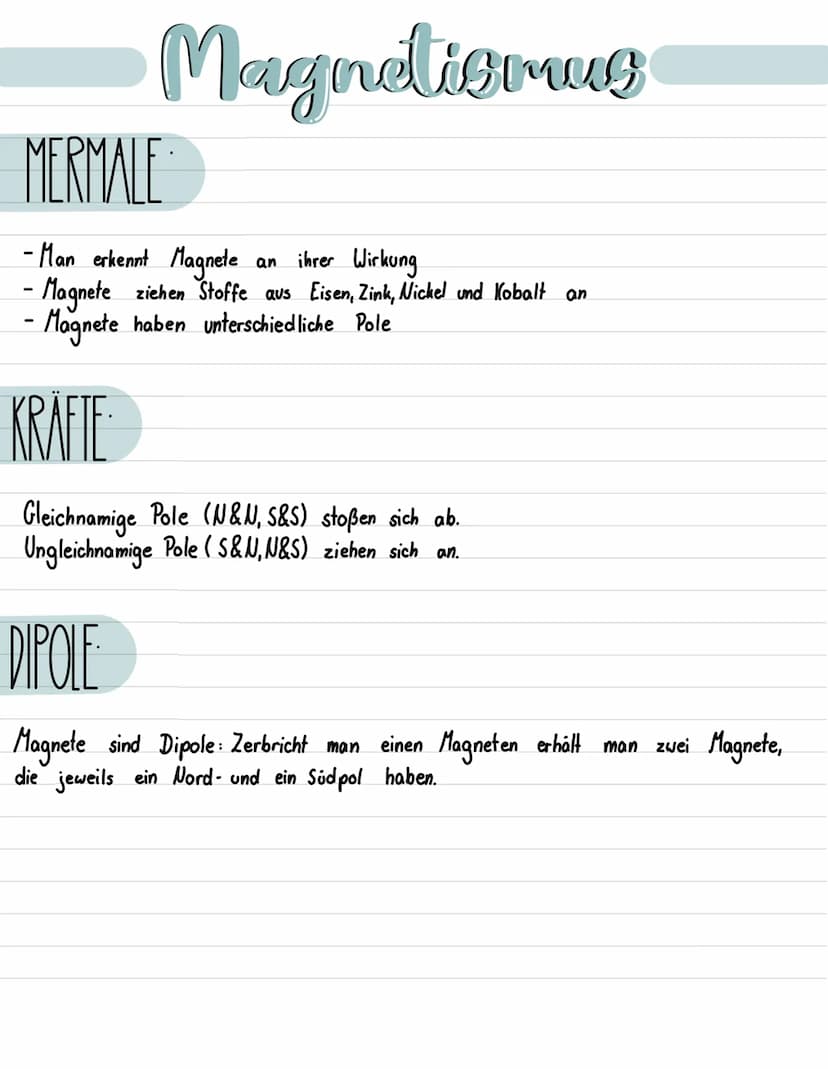 Magnetismus
MERMALE:
- Man erkennt Magnete an ihrer Wirkung
- Magnete ziehen Stoffe aus Eisen, Zink, Nickel und Kobalt an
- Magnete haben unterschiedliche Pole
KRÄFTE:
Gleichnamige Pole (N&N, S&S) stoßen sich ab.
Ungleichnamige Pole (S&N, N&S) ziehen sich an.
DIPOLE:
Magnete sind Dipole: Zerbricht man einen Magneten erhält man zwei Magnete,
die jeweils ein Nord- und ein Südpol haben.